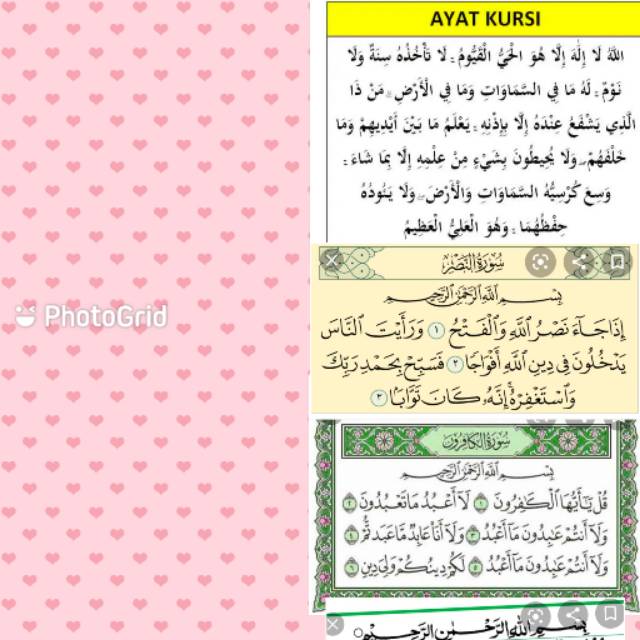 AYAT KURSI
اللهُ لَا إِلٰهَ إِلَّا هُوَ الْحَيُّ الْقَيُّومُ ۚ لَا تَأْخُذُهُ سِنَةٌ وَلَا
نَوْمٌ ۚ لَهُ مَا فِي السَّمَاوَاتِ وَمَا فِي الْأَرْضِ ۗ مَنْ ذَا
الَّذِي يَشْفَعُ عِنْدَهُ إِلَّا بِإِذْنِهِ ۚ يَعْلَمُ مَا بَيْنَ أَيْدِيهِمْ وَمَا
خَلْفَهُمْ ۖ وَلَا يُحِيطُونَ بِشَيْءٍ مِنْ عِلْمِهِ إِلَّا بِمَا شَاءَ ۚ
وَسِعَ كُرْسِيُّهُ السَّمَاوَاتِ وَالْأَرْضَ ۖ وَلَا يَئُودُهُ
حِفْظُهُمَا ۚ وَهُوَ الْعَلِيُّ الْعَظِيمُ
سُورَةُ النَّصْرِ
بِسْمِ اللَّهِ الرَّحْمَٰنِ الرَّحِيمِ
إِذَا جَاءَ نَصْرُ اللَّهِ وَالْفَتْحُ ١ وَرَأَيْتَ النَّاسَ
يَدْخُلُونَ فِي دِينِ اللَّهِ أَفْوَاجًا ٢ فَسَبِّحْ بِحَمْدِ رَبِّكَ
وَاسْتَغْفِرْهُ ۚ إِنَّهُ كَانَ تَوَّابًا ٣
PhotoGrid
سُورَةُ الْكَافِرُونَ
بِسْمِ اللَّهِ الرَّحْمَٰنِ الرَّحِيمِ
قُلْ يَٰأَيُّهَا الْكَٰفِرُونَ ١ لَا أَعْبُدُ مَا تَعْبُدُونَ ٢
وَلَا أَنتُمْ عَٰبِدُونَ مَا أَعْبُدُ ٣ وَلَا أَنَا عَابِدٌ مَّا عَبَدتُّمْ ٤
وَلَا أَنتُمْ عَٰبِدُونَ مَا أَعْبُدُ ٥ لَكُمْ دِينُكُمْ وَلِيَ دِينِ ٦
بِسْمِ اللَّهِ الرَّحْمَٰنِ الرَّحِيمِ